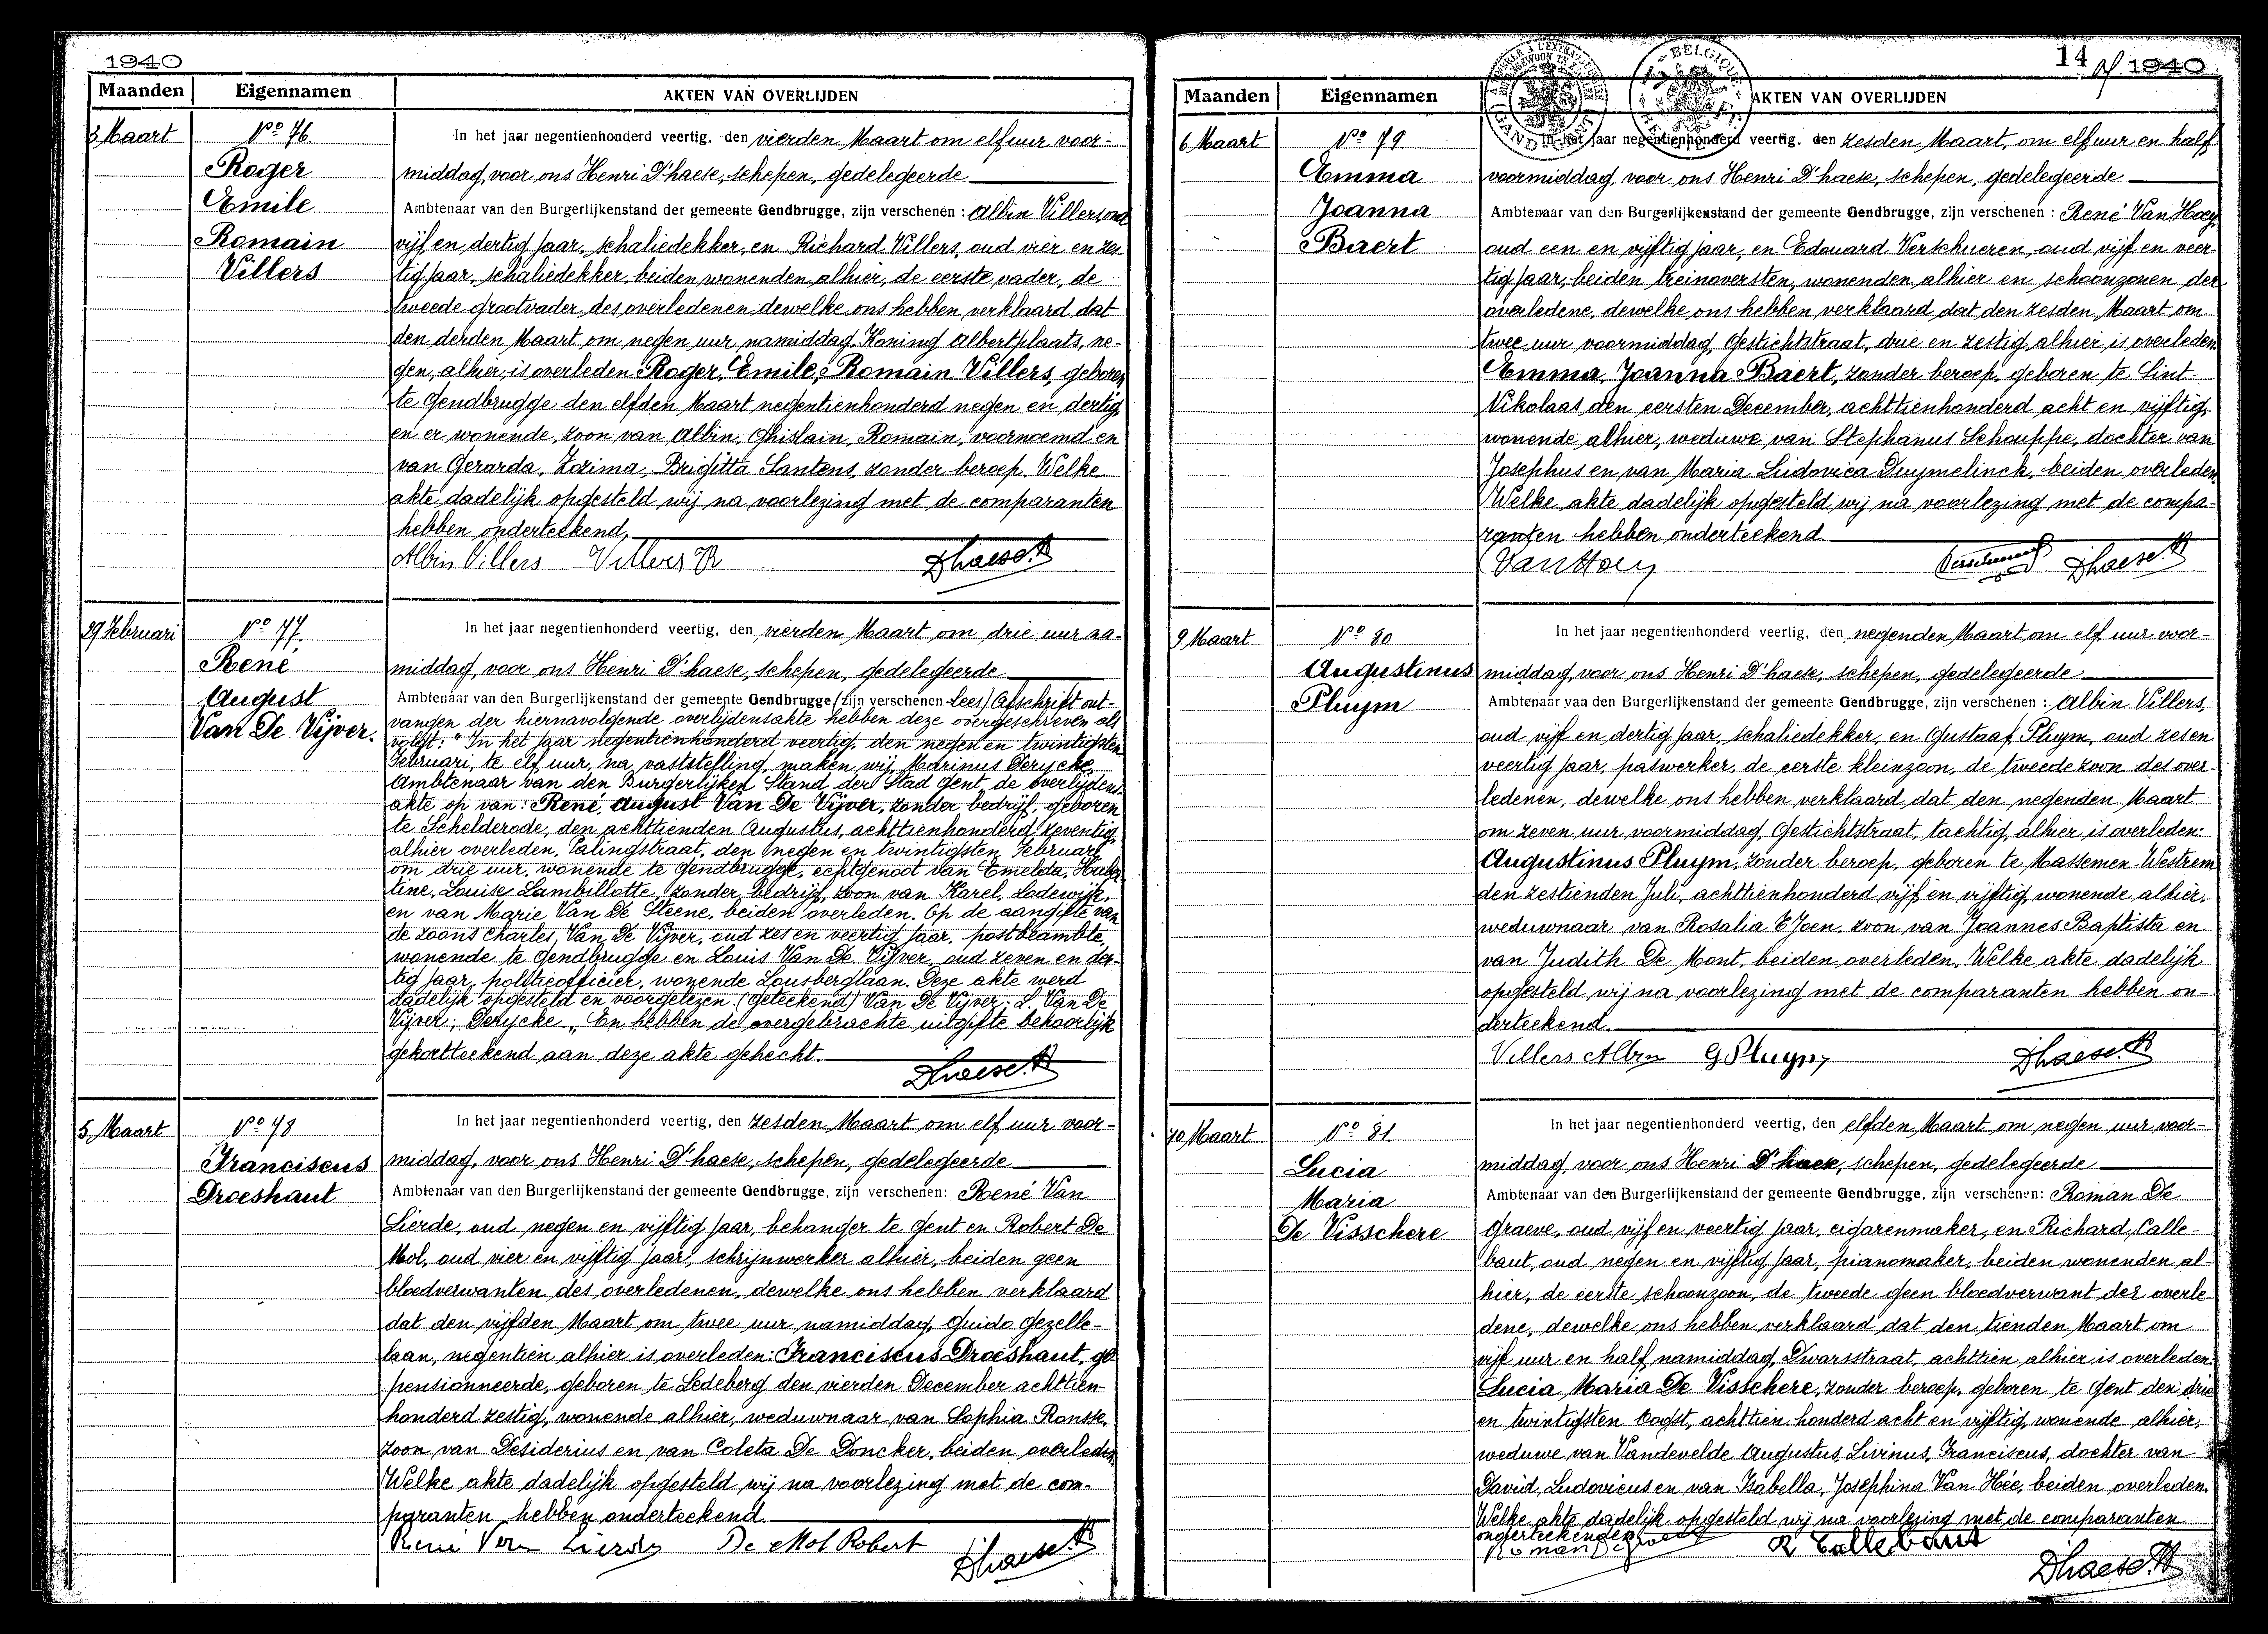 1940
Maanden Eigennamen AKTEN VAN OVERLIJDEN
3 Maart
No 76.
Roger
Emile
Romain
Villers
In het jaar negentienhonderd veertig, den vierden Maart om elf uur voor-
middag, voor ons Henri D'haese, schepen, gedelegeerde
Ambtenaar van den Burgerlijkenstand der gemeente Gendbrugge, zijn verschenen : Albin Villers oud
vijf en dertig jaar, schaliedekker, en Richard Villers, oud vier en zes-
tig jaar, schaliedekker, beiden wonenden alhier, de eerste vader, de
tweede grootvader des overledenen dewelke ons hebben verklaard dat
den derden Maart om negen uur namiddag, Koning Albertplaats, ne-
gen, alhier, is overleden Roger, Emile, Romain Villers, geboren
te Gendbrugge den elfden Maart negentienhonderd negen en dertig,
en er wonende, zoon van Albin, Ghislain, Romain, voornoemd en
van Gerarda, Zozima, Brigitta Santens, zonder beroep. Welke
akte dadelijk opgesteld wij na voorlezing met de comparanten
hebben onderteekend,
Albin Villers Villers R Dhaese H
29 Februari
No 77.
René
August
Van De Vijver.
In het jaar negentienhonderd veertig, den vierden Maart om drie uur na-
middag, voor ons Henri D'haese, schepen, gedelegeerde
Ambtenaar van den Burgerlijkenstand der gemeente Gendbrugge (zijn verschenen - lees) Afschrift ont-
vangen der hiernavolgende overlijdensakte hebben deze overgeschreven als
volgt: "In het jaar negentienhonderd veertig, den negen en twintigsten
Februari, te elf uur, na vaststelling, maken wij, Marinus Derycke,
Ambtenaar van den Burgerlijken Stand der Stad Gent, de overlijdens-
akte op van: René, August Van De Vijver, zonder bedrijf, geboren
te Schelderode, den achttienden Augustus, achttienhonderd zeventig
alhier overleden, Palingstraat, den negen en twintigsten Februari
om drie uur, wonende te Gendbrugge, echtgenoot van Emelda, Huber
tine, Louise Lambillotte, zonder bedrijf, zoon van Karel, Lodewijk,
en van Marie Van De Steene, beiden overleden. Op de aangifte van
de zoons Charles, Van De Vijver, oud zes en veertig jaar, postbeambte,
wonende te Gendbrugge en Louis Van De Vijver, oud zeven en der-
tig jaar, politieofficier, wonende Lousberglaan. Deze akte werd
dadelijk opgesteld en voorgelezen. (Geteekend) Van De Vijver; L. Van De
Vijver; Derycke„ En hebben de overgebrachte uitgifte behoorlijk
gekortteekend aan deze akte gehecht.
Dhaese H
5 Maart
No 78
Franciscus
Droeshaut
In het jaar negentienhonderd veertig, den zesden Maart om elf uur voor-
middag, voor ons Henri D'haese, schepen, gedelegeerde
Ambtenaar van den Burgerlijkenstand der gemeente Gendbrugge, zijn verschenen: René Van
Lierde, oud negen en vijftig jaar, behanger te Gent en Robert De
Mol, oud vier en vijftig jaar, schrijnwerker alhier, beiden geen
bloedverwanten des overledenen, dewelke ons hebben verklaard
dat den vijfden Maart om twee uur namiddag, Guido Gezelle-
laan, negentien alhier is overleden: Franciscus Droeshaut, ge-
pensionneerde, geboren te Ledeberg den vierden December achttien-
honderd zestig, wonende alhier, weduwnaar van Sophia Ronsse,
zoon van Desiderius en van Coleta De Doncker, beiden overleden
Welke akte dadelijk opgesteld wij na voorlezing met de com-
paranten hebben onderteekend.
René Van Lierde De Mol Robert Dhaese H
14 1940
Maanden Eigennamen AKTEN VAN OVERLIJDEN
6 Maart
No 79.
Emma
Joanna
Baert
In het jaar negentienhonderd veertig, den zesden Maart, om elf uur en half
voormiddag, voor ons Henri D'haese, schepen, gedelegeerde
Ambtenaar van den Burgerlijkenstand der gemeente Gendbrugge, zijn verschenen : René Van Hoey,
oud een en vijftig jaar, en Edouard Verschueren, oud vijf en veer-
tig jaar, beiden treinoversten, wonenden alhier en schoonzonen der
overledene, dewelke ons hebben verklaard dat den zesden Maart om
twee uur voormiddag, Gestichtstraat, drie en zestig, alhier is overleden
Emma, Joanna Baert, zonder beroep, geboren te Sint-
Nikolaas den eersten December, achttienhonderd acht en vijftig,
wonende alhier, weduwe van Stephanus Schouppe, dochter van
Josephus en van Maria Ludovica Duymelinck, beiden overleden.
Welke akte dadelijk opgesteld wij na voorlezing met de compa-
ranten hebben onderteekend
VanHoey Verschueren Dhaese H
9 Maart
No 80
Augustinus
Pluym
In het jaar negentienhonderd veertig, den negenden Maart om elf uur voor-
middag, voor ons Henri D'haese, schepen, gedelegeerde
Ambtenaar van den Burgerlijkenstand der gemeente Gendbrugge, zijn verschenen : Albin Villers,
oud vijf en dertig jaar, schaliedekker, en Gustaaf Pluym, oud zes en
veertig jaar, paswerker, de eerste kleinzoon, de tweede zoon des over-
ledenen, dewelke ons hebben verklaard dat den negenden Maart
om zeven uur voormiddag, Gestichtstraat, tachtig, alhier is overleden:
Augustinus Pluym, zonder beroep, geboren te Massemen Westrem
den zestienden Juli, achttienhonderd vijf en vijftig, wonende alhier,
weduwnaar van Rosalia T'Joen, zoon van Joannes Baptista en
van Judith De Mont, beiden overleden. Welke akte dadelijk
opgesteld wij na voorlezing met de comparanten hebben on-
derteekend.
Villers Albin G Pluym Dhaese H
10 Maart
No 81.
Lucia
Maria
De Visschere
In het jaar negentienhonderd veertig, den elfden Maart om negen uur voor-
middag, voor ons Henri D'haese, schepen, gedelegeerde
Ambtenaar van den Burgerlijkenstand der gemeente Gendbrugge, zijn verschenen: Roman De
Graeve, oud vijf en veertig jaar, cigarenmaker, en Richard, Calle-
baut, oud negen en vijftig jaar, pianomaker, beiden wonenden al-
hier, de eerste schoonzoon, de tweede geen bloedverwant der overle
dene, dewelke ons hebben verklaard dat den tienden Maart om
vijf uur en half, namiddag, Dwarsstraat, achttien alhier is overleden:
Lucia Maria De Visschere, zonder beroep, geboren te Gent den drie
en twintigsten Oogst, achttien honderd acht en vijftig, wonende alhier,
weduwe van Vandevelde Augustus, Livinus, Franciscus, dochter van
David, Ludovicus en van Isabella, Josephina Van Hée, beiden overleden.
Welke akte dadelijk opgesteld wij na voorlezing met de comparanten
onderteekenden
Roman De Graeve R Callebaut Dhaese H